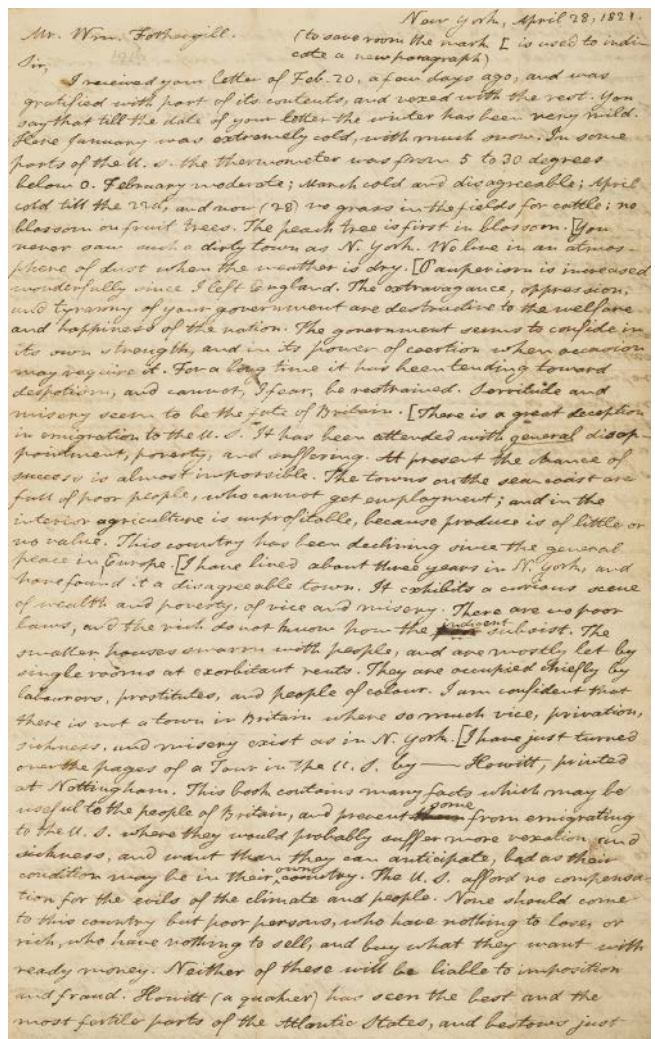 New York, April 28, 1821.
Mr. Wm. Fothergill.
(to save room the mark [ is used to indi
cate a new paragraph)
Sir,
I received your letter of Feb. 20, a few days ago, and was
gratified with part of its contents, and vexed with the rest. You
say that till the date of your letter the winter has been very mild.
Here January was extremely cold, with much snow. In some
parts of the U. S. the thermometer was from 5 to 30 degrees
below 0. February moderate; March cold and disagreeable; April
cold till the 22d, and now (28) no grass in the fields for cattle; no
blossom on fruit trees. The peach tree is first in blossom. [You
never saw such a dirty town as N. York. We live in an atmos-
phere of dust when the weather is dry. [Pauperism is increased
wonderfully since I left England. The extravagance, oppression,
and tyranny of your government are destructive to the welfare
and happiness of the nation. The government seems to confide in
its own strength, and in its power of coertion when occasion
may require it. For a long time it has been tending toward
despotism, and cannot, I fear, be restrained. Servitude and
misery seem to be the fate of Britain. [There is a great deception
in emigration to the U. S. It has been attended with general disap-
pointment, poverty, and suffering. At present the chance of
success is almost impossible. The towns on the sea coast are
full of poor people, who cannot get employment; and in the
interior agriculture is unprofitable, because produce is of little or
no value. This country has been declining since the general
peace in Europe. [I have lived about three years in N. York, and
have found it a disagreeable town. It exhibits a curious scene
of wealth and poverty, of vice and misery. There are no poor
laws, and the rich do not know how the indigent subsist. The
smaller houses swarm with people, and are mostly let by
single rooms at exorbitant rents. They are occupied chiefly by
labourers, prostitutes, and people of colour. I am confident that
there is not a town in Britain where so much vice, privation,
sickness, and misery exist as in N. York. [I have just turned
over the pages of a Tour in the U. S. by — Howitt, printed
at Nottingham. This book contains many facts which may be
useful to the people of Britain, and prevent some from emigrating
to the U. S. where they would probably suffer more vexation, and
sickness, and want than they can anticipate, bad as their
condition may be in their own country. The U. S. afford no compensa-
tion for the evils of the climate and people. None should come
to this country but poor persons, who have nothing to lose, or
rich, who have nothing to sell, and buy what they want with
ready money. Neither of these will be liable to imposition
and fraud. Howitt (a quaker) has seen the best and the
most fertile parts of the Atlantic States, and bestows just